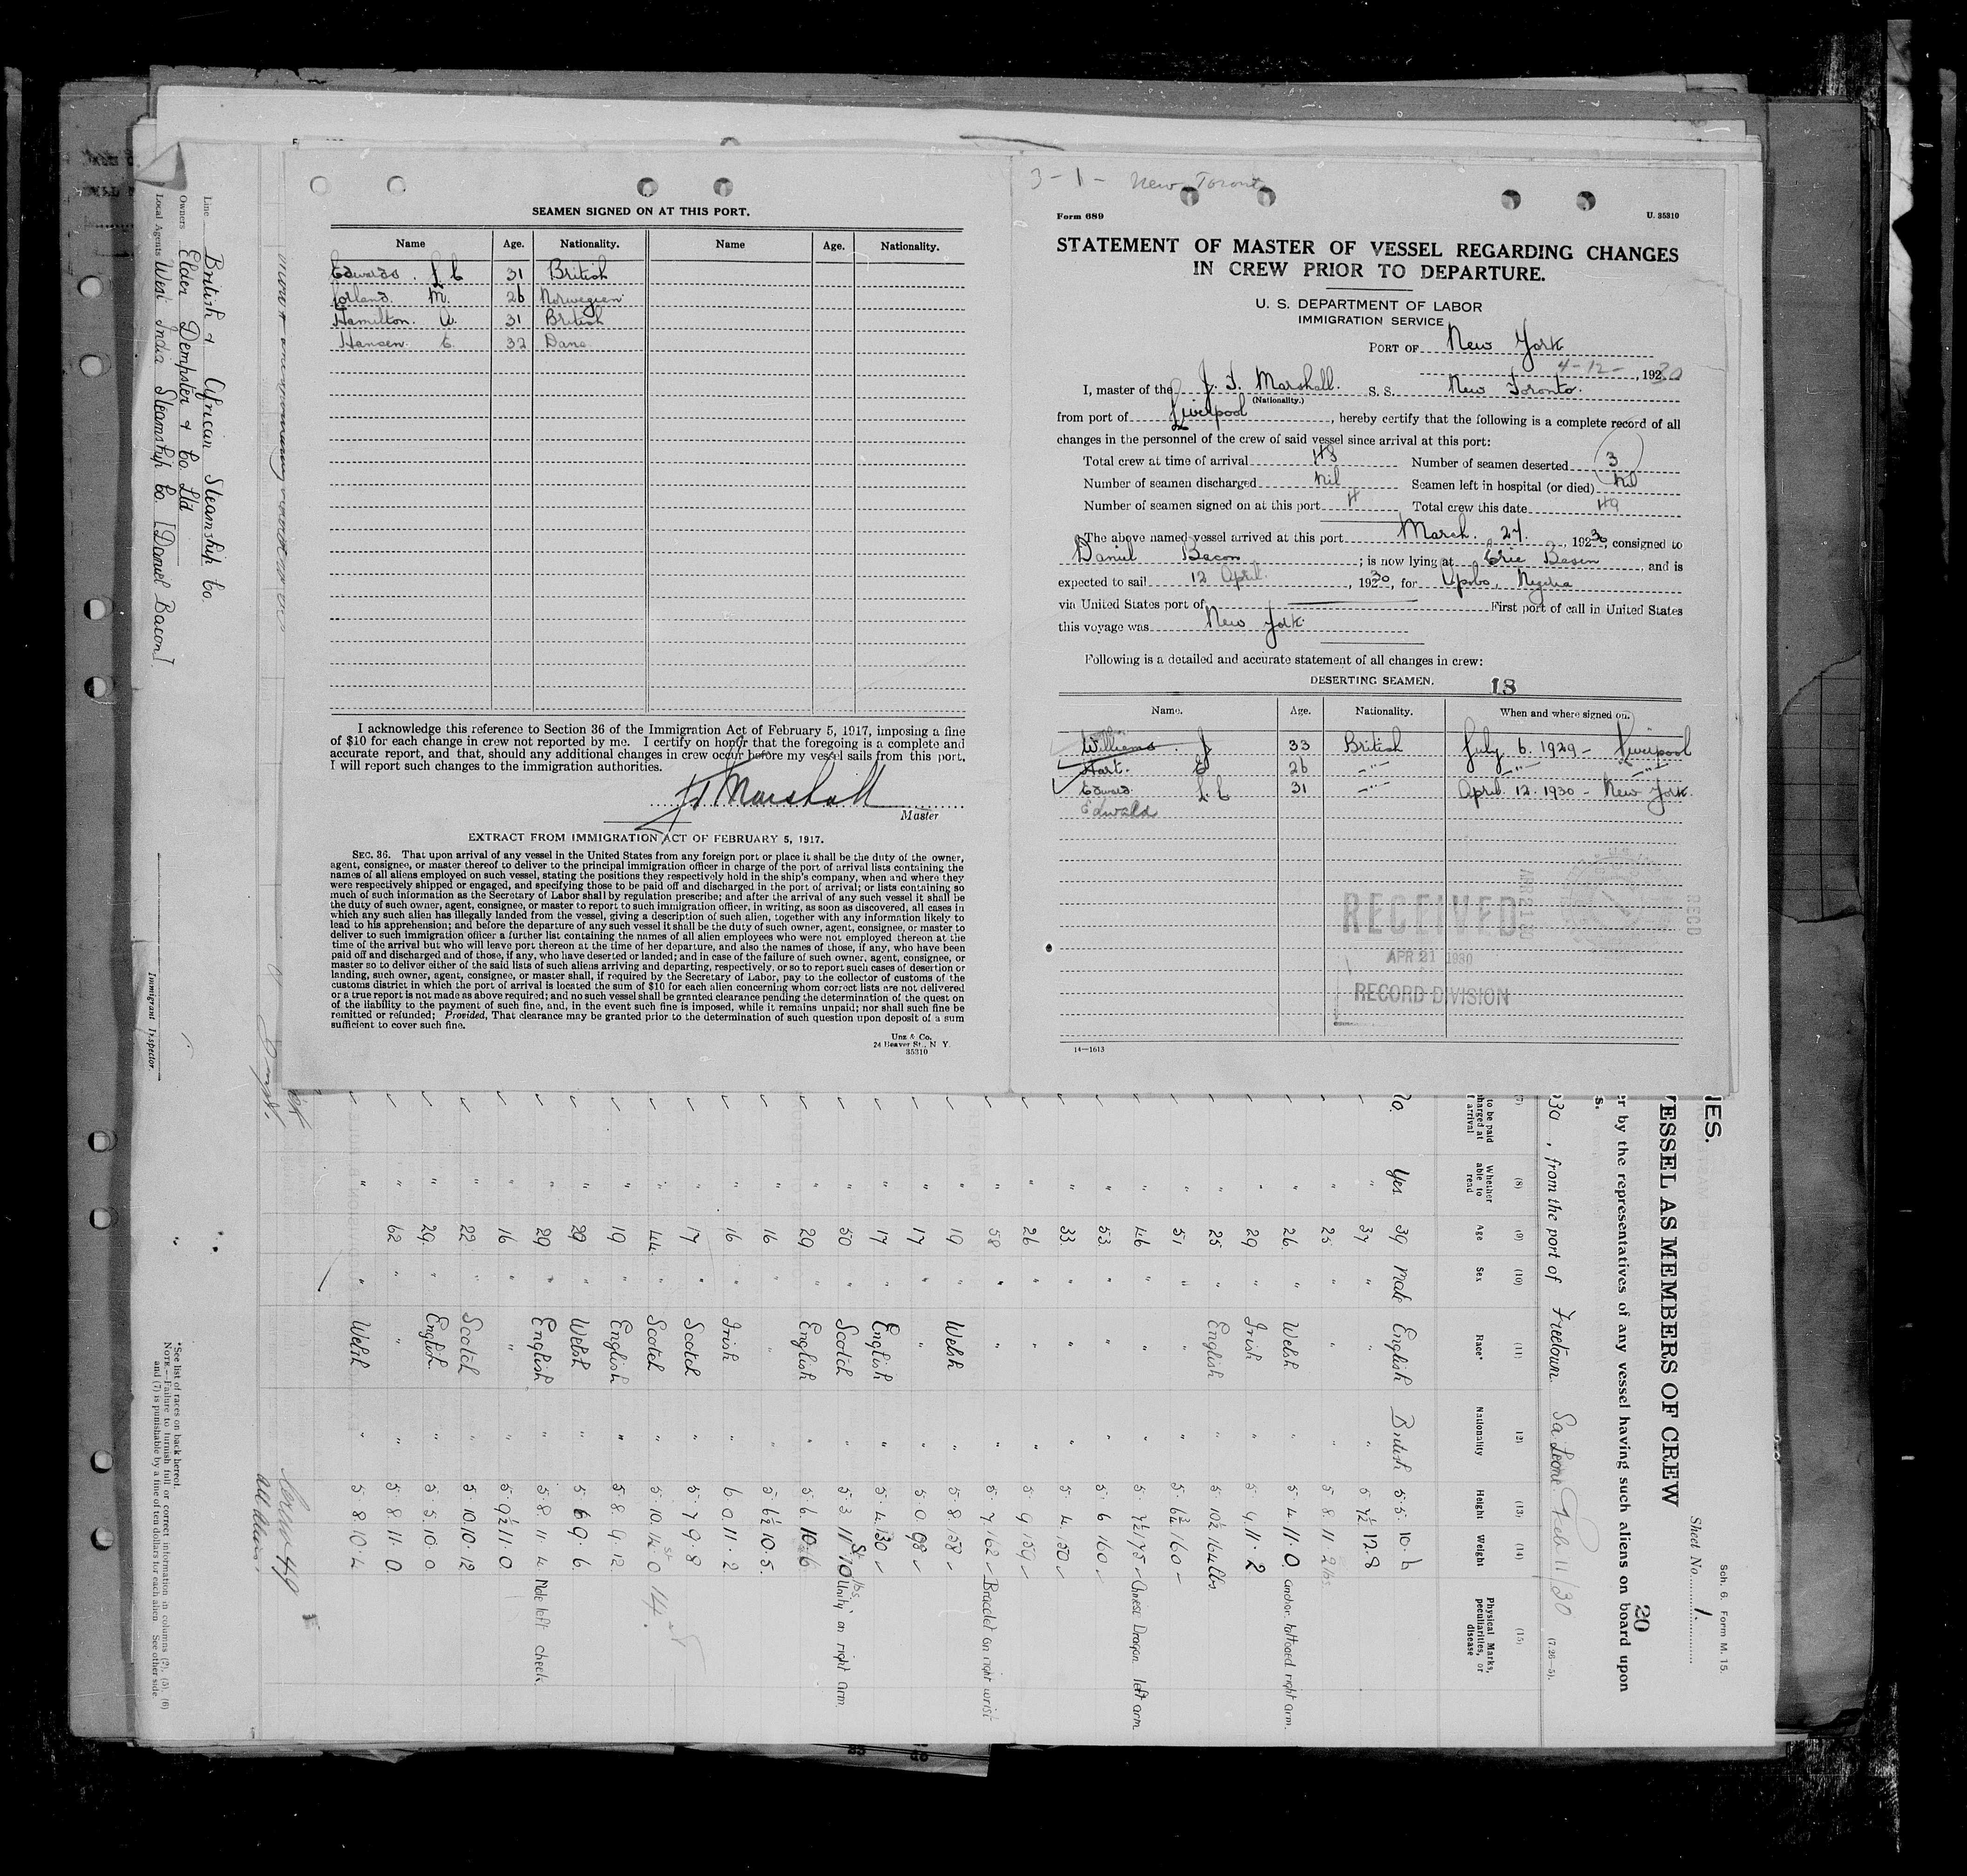 SEAMEN SIGNED ON AT THIS PORT.
Name Age. Nationality. Name Age. Nationality.
Edwards. L C 31 British
M. 26 Norwegian
Hamilton. A. 31 British
Hansen. C. 32 Dane
I acknowledge this reference to Section 36 of the Immigration Act of February 5, 1917, imposing a fine
of $10 for each change in crew not reported by me. I certify on honor that the foregoing is a complete and
accurate report, and that, should any additional changes in crew occur before my vessel sails from this port,
I will report such changes to the immigration authorities.
J T Marshall
Master
EXTRACT FROM IMMIGRATION ACT OF FEBRUARY 5, 1917.
SEC. 36. That upon arrival of any vessel in the United States from any foreign port or place it shall be the duty of the owner,
agent, consignee, or master thereof to deliver to the principal immigration officer in charge of the port of arrival lists containing the
names of all aliens employed on such vessel, stating the positions they respectively hold in the ship's company, when and where they
were respectively shipped or engaged, and specifying those to be paid off and discharged in the port of arrival; or lists containing so
much of such information as the Secretary of Labor shall by regulation prescribe; and after the arrival of any such vessel it shall be
the duty of such owner, agent, consignee, or master to report to such immigration officer, in writing, as soon as discovered, all cases in
which any such alien has illegally landed from the vessel, giving a description of such alien, together with any information likely to
lead to his apprehension; and before the departure of any such vessel it shall be the duty of such owner, agent, consignee, or master to
deliver to such immigration officer a further list containing the names of all alien employees who were not employed thereon at the
time of the arrival but who will leave port thereon at the time of her departure, and also the names of those, if any, who have been
paid off and discharged and of those, if any, who have deserted or landed; and in case of the failure of such owner, agent, consignee, or
master so to deliver either of the said lists of such aliens arriving and departing, respectively, or so to report such cases of desertion or
landing, such owner, agent, consignee, or master shall, if required by the Secretary of Labor, pay to the collector of customs of the
customs district in which the port of arrival is located the sum of $10 for each alien concerning whom correct lists are not delivered
or a true report is not made as above required; and no such vessel shall be granted clearance pending the determination of the quest on
of the liability to the payment of such fine, and, in the event such fine is imposed, while it remains unpaid; nor shall such fine be
remitted or refunded; Provided, That clearance may be granted prior to the determination of such question upon deposit of a sum
sufficient to cover such fine.
Unz & Co.
24 Beaver St., N Y.
35310
3-1- New Toronto
Form 689 U. 35310
STATEMENT OF MASTER OF VESSEL REGARDING CHANGES
IN CREW PRIOR TO DEPARTURE.
U. S. DEPARTMENT OF LABOR
IMMIGRATION SERVICE
PORT OF New York
4-12-, 1930
I, master of the J. T. Marshall. S. S. New Toronto.
(Nationality.)
from port of Liverpool, hereby certify that the following is a complete record of all
changes in the personnel of the crew of said vessel since arrival at this port:
Total crew at time of arrival 48 Number of seamen deserted 3
Number of seamen discharged Nil Seamen left in hospital (or died) Nil
Number of seamen signed on at this port 4 Total crew this date 49
The above named vessel arrived at this port March. 27., 1930, consigned to
Daniel Bacon; is now lying at Erie Basin, and is
expected to sail 12 April., 1930, for Nigeria
via United States port of First port of call in United States
this voyage was New York.
Following is a detailed and accurate statement of all changes in crew:
DESERTING SEAMEN. 18
Name. Age. Nationality. When and where signed on.
Williams. J 33 British July 6. 1929 - Liverpool
Hart. E 26 -"- -"- -"-
Edward. L. C 31 -"- April. 12. 1930 - New York.
Edwald
RECEIVED
APR 21 1930
RECORD DIVISION
APR 21 30
REC'D
14—1613
Line British & African Steamship Co.
Owners Elder Dempster & Co. Ltd
Local Agents West India Steamship Co. [Daniel Bacon]
Immigrant Inspector.
Sch. 6. Form M. 15.
Sheet No. 1.
IES.
20
VESSEL AS MEMBERS OF CREW
er by the representatives of any vessel having such aliens on board upon
s.
30, from the port of Freetown. Sa Leone. Feb 11/30 (7.26—5).
(7) (8) (9) (10) (11) 12) (13) (14) (15)
to be paid harged at f arrival Whether able to read Age Sex Race* Nationality Height Weight Physical Marks, peculiarities, or disease
No. Yes 39 male English British 5.5 10.6
" 37 " " " 5 7½ 12.8
" 25 " " " 5 8 11.2 lbs.
" 26. " Welsh " 5.4 11.0 anchor tattooed right arm.
" 29 " Irish " 5.9. 11.2
" 25 " English " 5 10½ 164 lbs.
" 51 " " " 5.6¾ 160
" 46 " " " 5. 7½ 175 Chinese Dragon left arm
" 53. " " " 5.6 160
" 33. " " " 5.4. 150
" 26 " " " 5.9 159
" 58 " " " 5.7 162 Bracelet on right wrist
" 19 " Welsh " 5.8 158
" 17 " " " 5.0. 98
" 17 " English " 5.4. 130
" 50 " Scotch " 5.3 11 st 10 lbs. 'Unity' on right arm.
" 29 " English " 5.6. 10.6
" 16 " " " 5 6½ 10.5.
" 16 " Irish " 6.0. 11.2
" 17 " Scotch " 5.7 9.8
" 44. " Scotch " 5.10. 14 st 0 14.
" 19 " English " 5.8. 9.12
" 29 " Welsh " 5 6 9.6.
" 29 " English " 5.8. 11.4 Mole left cheek
" 16 " " " 5.9½ 11.0
" 22 " Scotch " 5.10. 10.12
" 29. " English " 5.5. 10.0
" 62 " " " 5 8 11.0.
" " Welsh " 5 8 10.4
Crew 49
*See list of races on back hereof.
NOTE.—Failure to furnish full or correct information in columns (2), (5), (6)
and (7) is punishable by a fine of ten dollars for each alien See other side